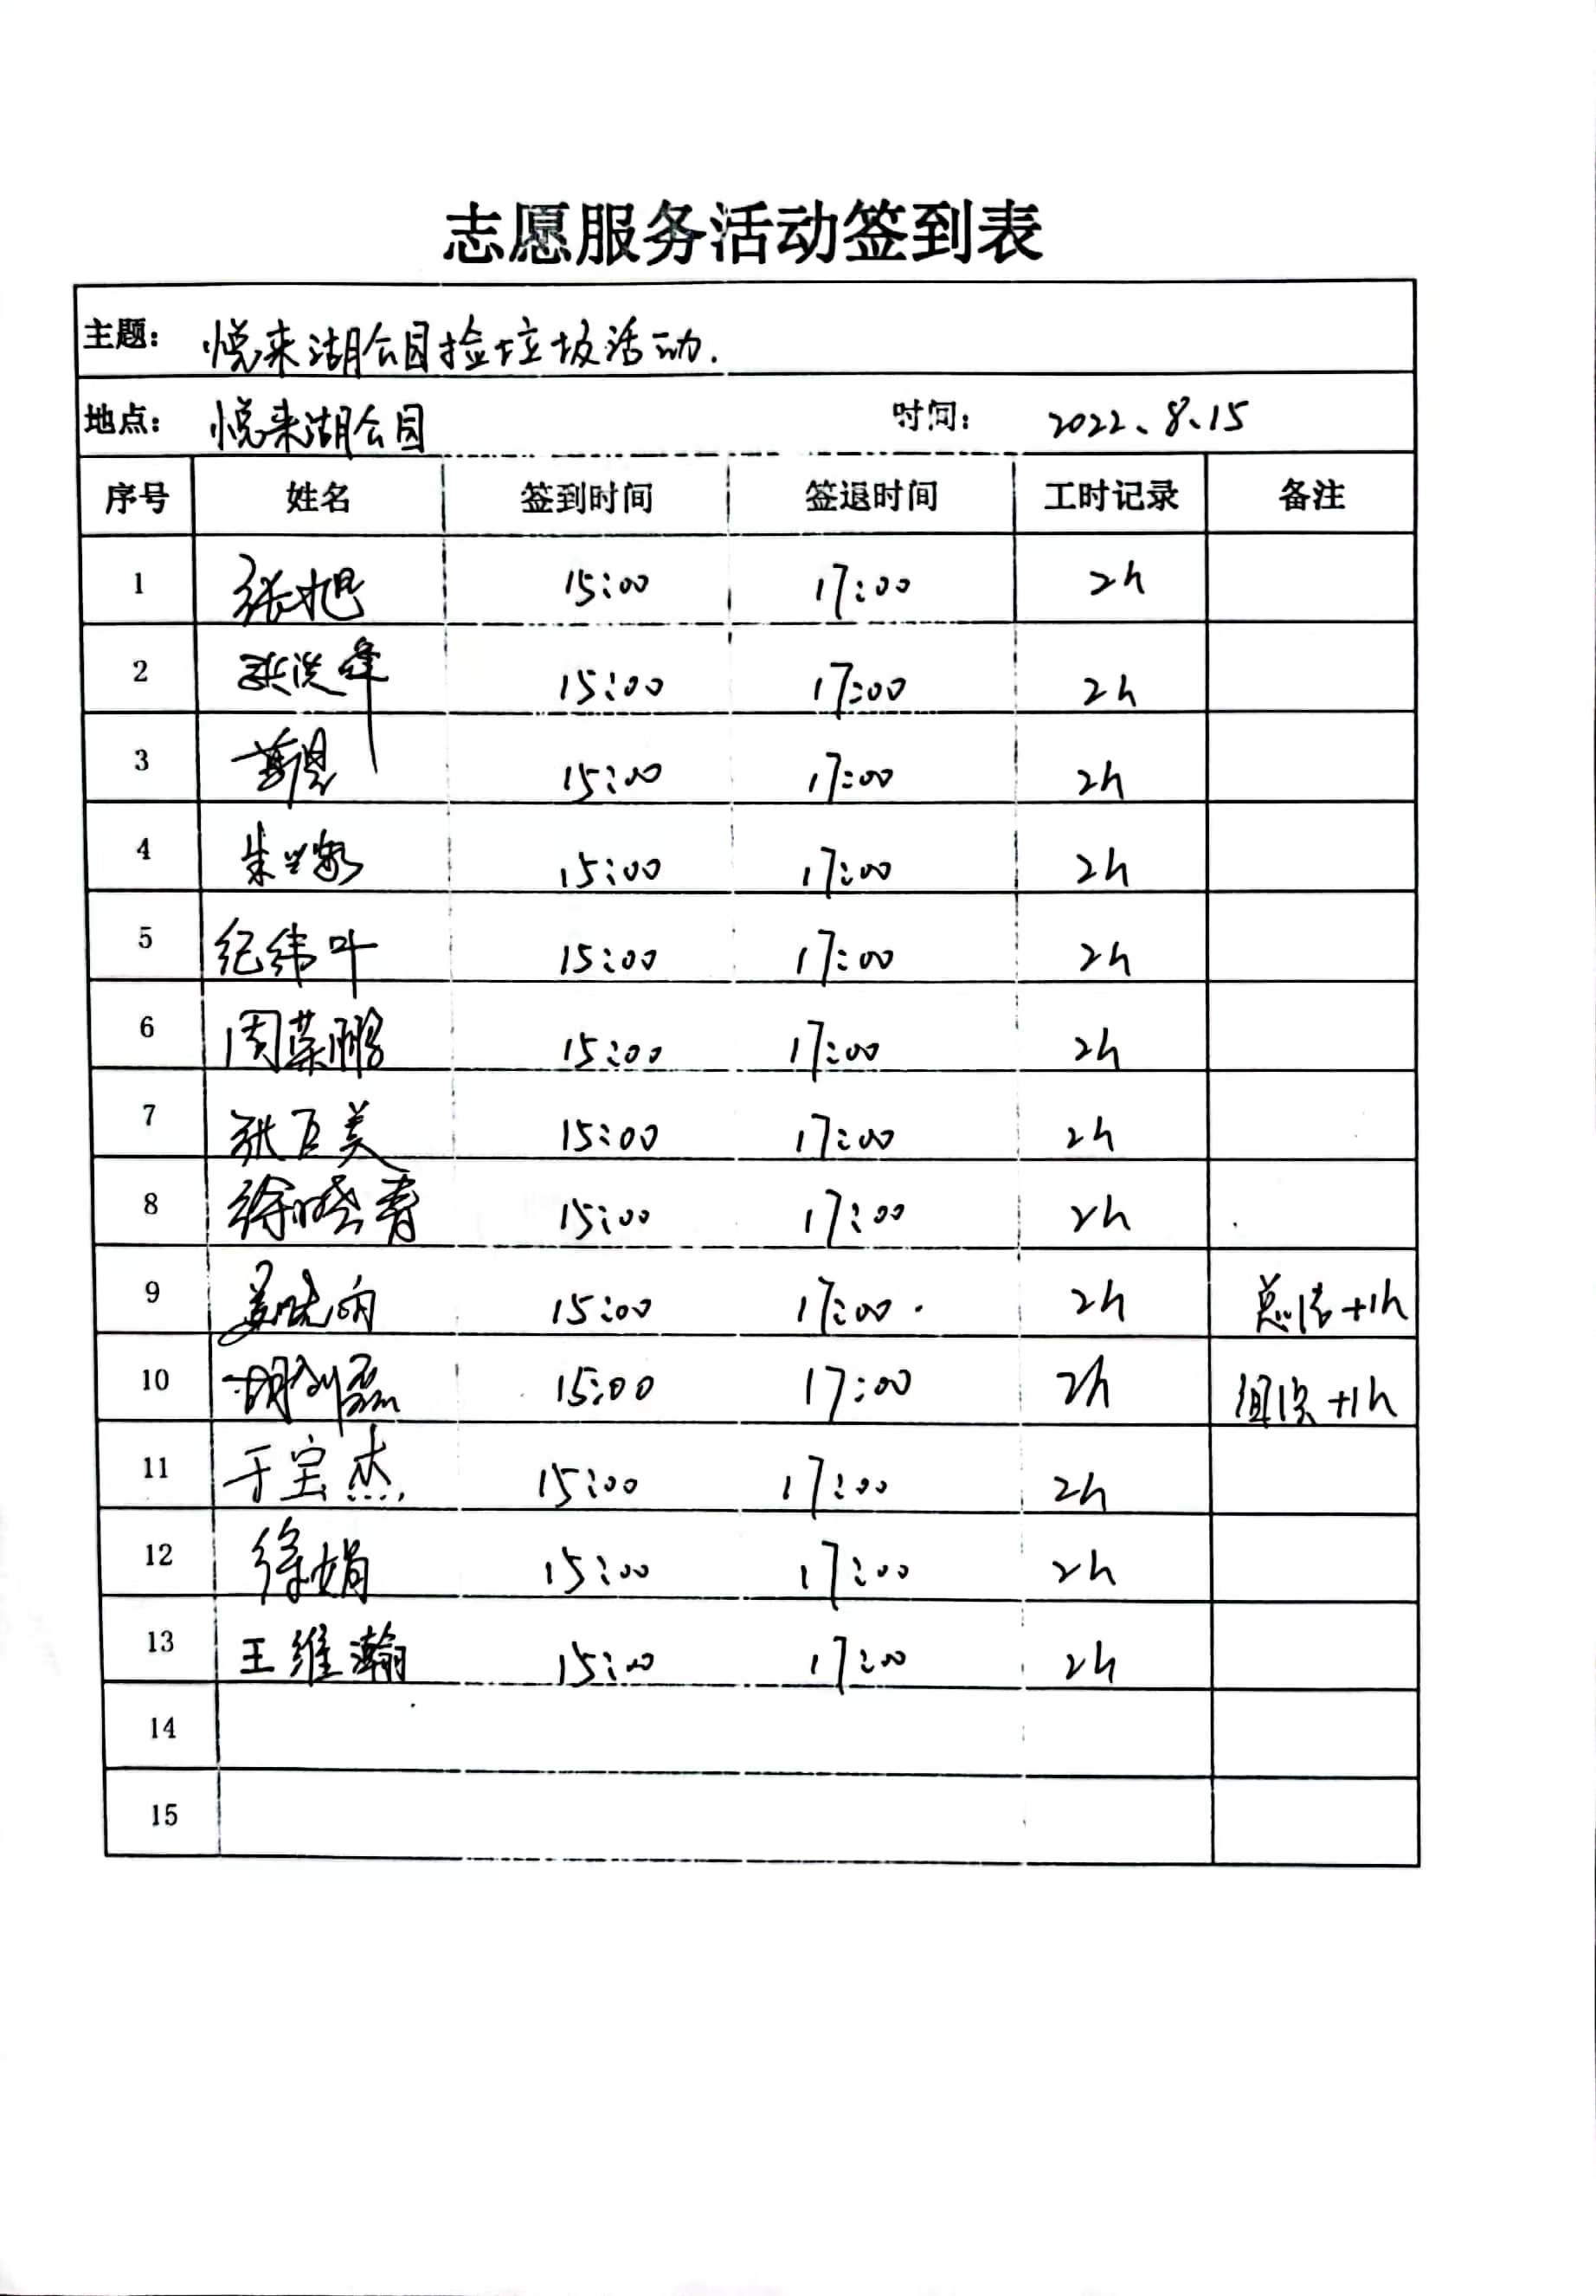 志愿服务活动签到表
主题: 悦来湖公园捡垃圾活动.
地点: 悦来湖公园 时间: 2022、8、15
序号 姓名 签到时间 签退时间 工时记录 备注
1 张旭 15:00 17:00 2h
2 张洪峰 15:00 17:00 2h
3 15:00 17:00 2h
4 朱 15:00 17:00 2h
5 纪纬叶 15:00 17:00 2h
6 周荣鹏 15:00 17:00 2h
7 张巨美 15:00 17:00 2h
8 徐晓青 15:00 17:00 2h
9 姜晓雨 15:00 17:00. 2h 总结+1h
10 胡 磊 15:00 17:00 2h 组织+1h
11 于宝杰 15:00 17:00 2h
12 徐娟 15:00 17:00 2h
13 王维瀚 15:00 17:00 2h
14
15